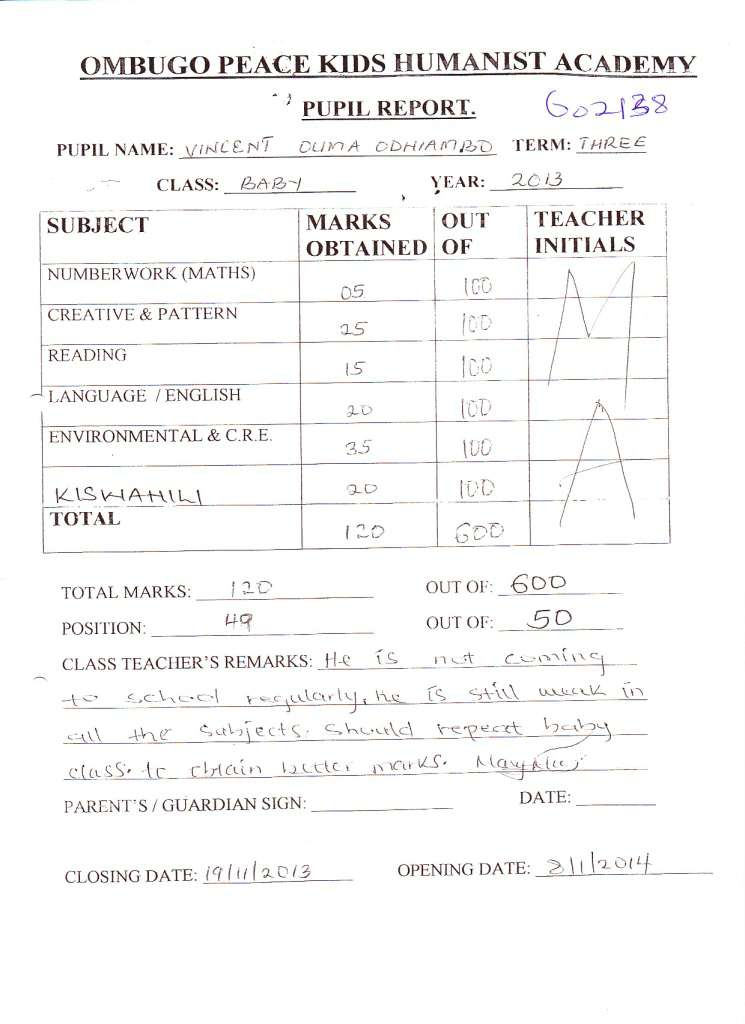 OMBUGO PEACE KIDS HUMANIST ACADEMY
PUPIL REPORT. G02138
PUPIL NAME: VINCENT OUMA ODHIAMBO TERM: THREE
CLASS: BABY YEAR: 2013
SUBJECT MARKS OBTAINED OUT OF TEACHER INITIALS
NUMBERWORK (MATHS) 05 100
CREATIVE & PATTERN 25 100
READING 15 100
LANGUAGE / ENGLISH 20 100
ENVIRONMENTAL & C.R.E. 35 100
KISWAHILI 20 100
TOTAL 120 600
M A
TOTAL MARKS: 120 OUT OF: 600
POSITION: 49 OUT OF: 50
CLASS TEACHER'S REMARKS: He is not coming
to school regularly, he is still weak in
all the subjects. Should repeat baby
class. to obtain better marks. Mary
PARENT'S / GUARDIAN SIGN: DATE:
CLOSING DATE: 19/11/2013 OPENING DATE: 8/1/2014